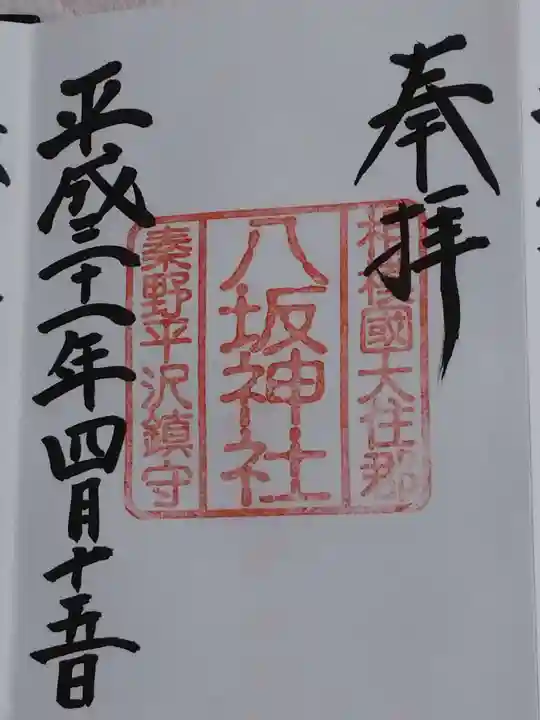 奉拝
相模國大住郡
八坂神社
秦野平沢鎮守
平成三十一年四月十五日